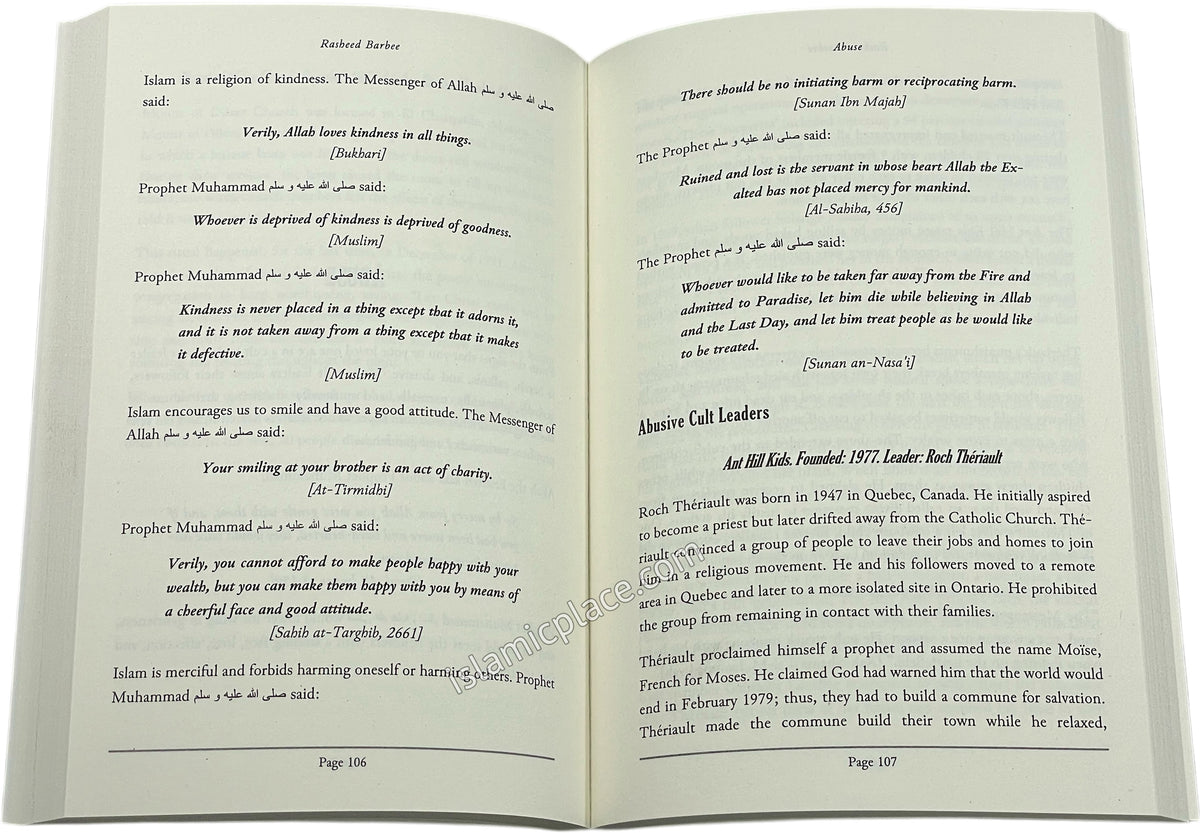 Rasheed Barbee
Islam is a religion of kindness. The Messenger of Allah صلى الله عليه و سلم
said:
Verily, Allah loves kindness in all things.
[Bukhari]
Prophet Muhammad صلى الله عليه و سلم said:
Whoever is deprived of kindness is deprived of goodness.
[Muslim]
Prophet Muhammad صلى الله عليه و سلم said:
Kindness is never placed in a thing except that it adorns it,
and it is not taken away from a thing except that it makes
it defective.
[Muslim]
Islam encourages us to smile and have a good attitude. The Messenger of
Allah صلى الله عليه و سلم said:
Your smiling at your brother is an act of charity.
[At-Tirmidhi]
Prophet Muhammad صلى الله عليه و سلم said:
Verily, you cannot afford to make people happy with your
wealth, but you can make them happy with you by means of
a cheerful face and good attitude.
[Sahih at-Targhib, 2661]
Islam is merciful and forbids harming oneself or harming others. Prophet
Muhammad صلى الله عليه و سلم said:
Page 106
Abuse
There should be no initiating harm or reciprocating harm.
[Sunan Ibn Majah]
The Prophet صلى الله عليه و سلم said:
Ruined and lost is the servant in whose heart Allah the Ex-
alted has not placed mercy for mankind.
[Al-Sahiha, 456]
The Prophet صلى الله عليه و سلم said:
Whoever would like to be taken far away from the Fire and
admitted to Paradise, let him die while believing in Allah
and the Last Day, and let him treat people as he would like
to be treated.
[Sunan an-Nasa'i]
Abusive Cult Leaders
Ant Hill Kids. Founded: 1977. Leader: Roch Thériault
Roch Thériault was born in 1947 in Quebec, Canada. He initially aspired
to become a priest but later drifted away from the Catholic Church. Thé-
riault convinced a group of people to leave their jobs and homes to join
him in a religious movement. He and his followers moved to a remote
area in Quebec and later to a more isolated site in Ontario. He prohibited
the group from remaining in contact with their families.
Thériault proclaimed himself a prophet and assumed the name Moïse,
French for Moses. He claimed God had warned him that the world would
end in February 1979; thus, they had to build a commune for salvation.
Thériault made the commune build their town while he relaxed,
Page 107
islamicplace.com